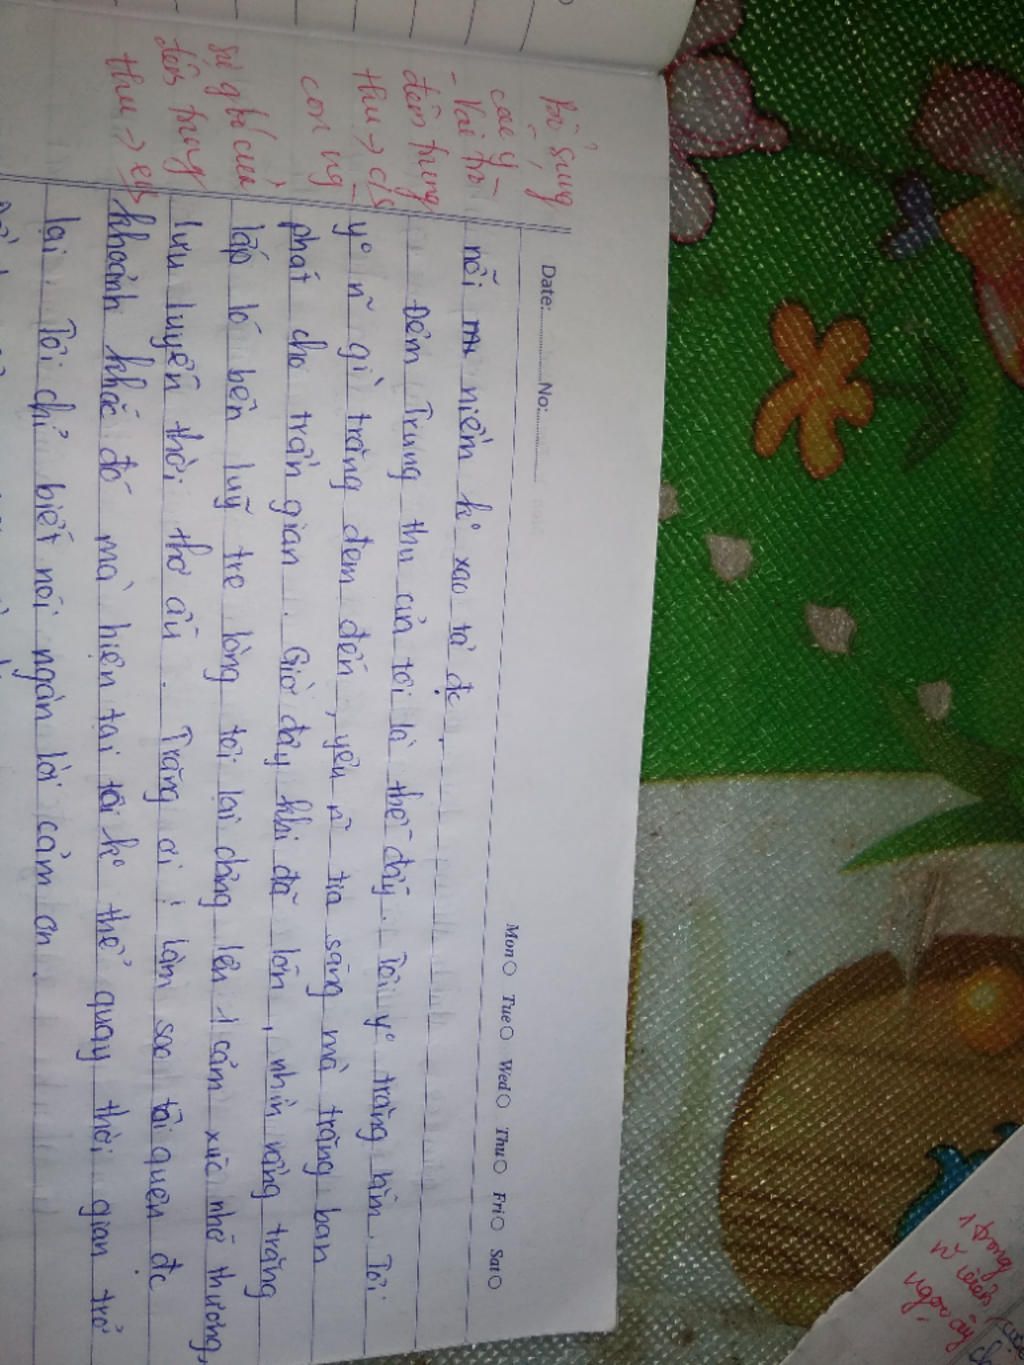 Date: No:
Mon Tue Wed Thu Fri Sat
Bổ sung
các ý
- Vai trò
đêm trung
thu -> c/s
con ng
sự gắn bó của
đêm trung
thu -> em
nỗi niềm k° xao tả đc.
Đêm Trung thu của tôi là thế đấy. Tôi y° trăng lắm. Tôi
y° n~ gì trăng đem đến, yêu n~ tia sáng mà trăng ban
phát cho trần gian. Giờ đây khi đã lớn, nhìn vầng trăng
lấp ló bên luỹ tre lòng tôi lại dâng lên 1 cảm xúc nhớ thương,
lưu luyến thời thơ ấu. Trăng ơi! Làm sao tôi quên đc
khoảnh khắc đó mà hiện tại tôi k° thể quay thời gian trở
lại. Tôi chỉ biết nói ngàn lời cảm ơn.
1 trong
ngọn cây